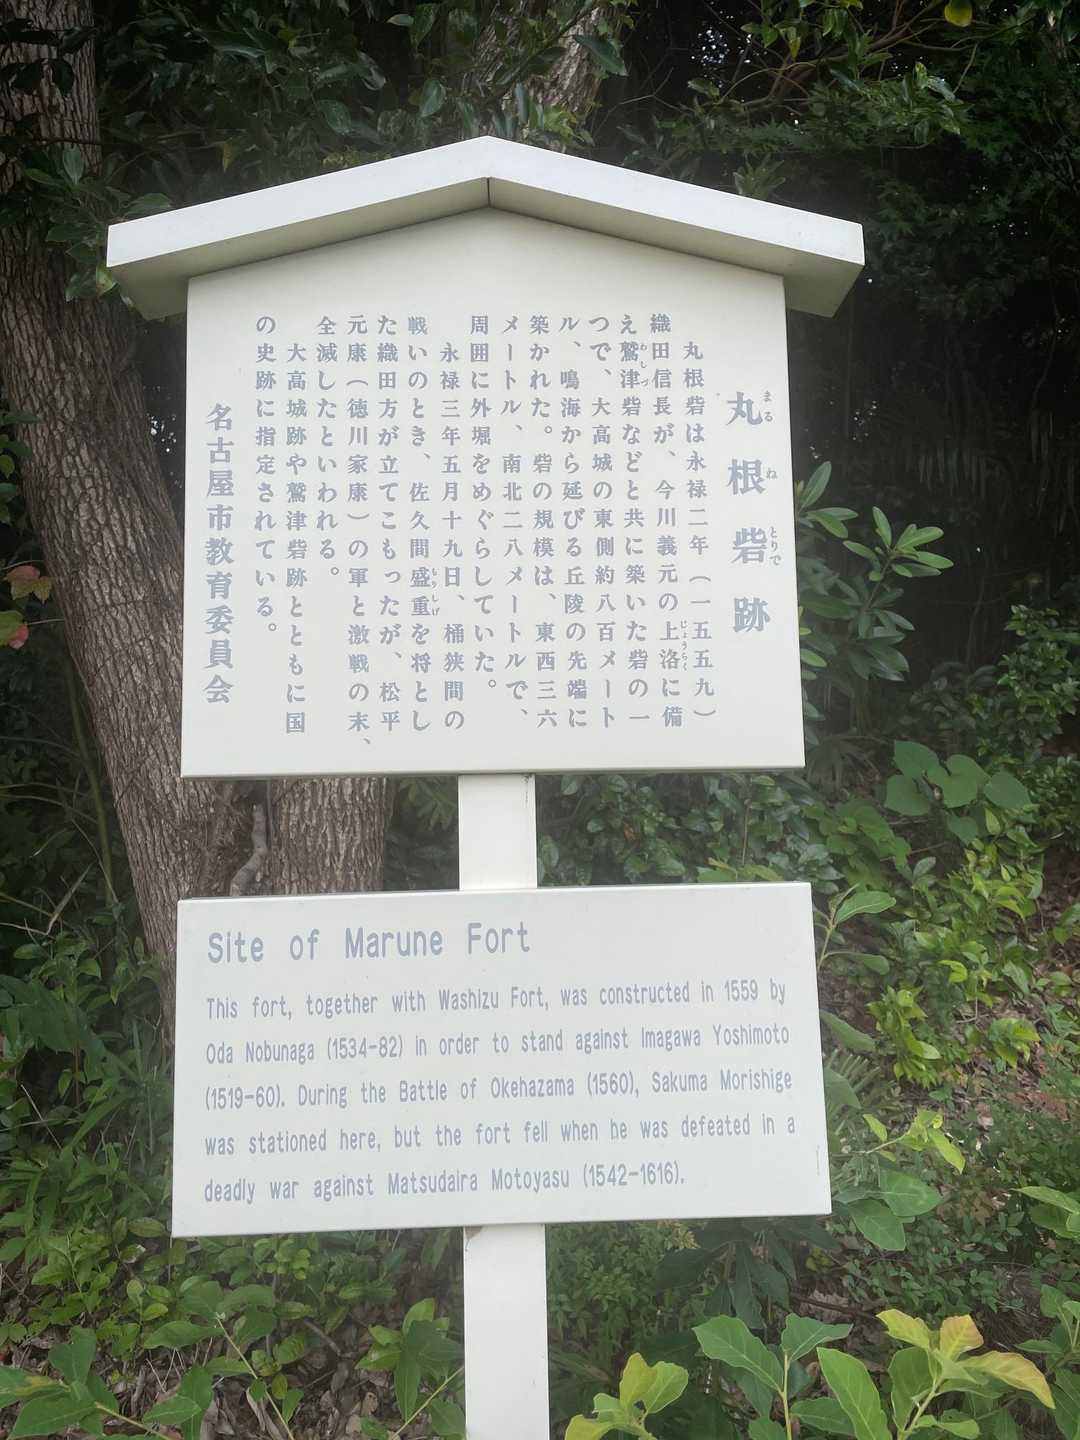 丸根砦跡
まるねとりで
丸根砦は永禄二年（一五五九）
織田信長が、今川義元の上洛に備
じょうらく
え鷲津砦などと共に築いた砦の一
わしづ
つで、大高城の東側約八百メート
ル、鳴海から延びる丘陵の先端に
築かれた。砦の規模は、東西三六
メートル、南北二八メートルで、
周囲に外堀をめぐらしていた。
永禄三年五月十九日、桶狭間の
戦いのとき、佐久間盛重を将とし
もりしげ
た織田方が立てこもったが、松平
元康（徳川家康）の軍と激戦の末、
全滅したといわれる。
大高城跡や鷲津砦跡とともに国
の史跡に指定されている。
名古屋市教育委員会
Site of Marune Fort
This fort, together with Washizu Fort, was constructed in 1559 by
Oda Nobunaga (1534-82) in order to stand against Imagawa Yoshimoto
(1519-60). During the Battle of Okehazama (1560), Sakuma Morishige
was stationed here, but the fort fell when he was defeated in a
deadly war against Matsudaira Motoyasu (1542-1616).